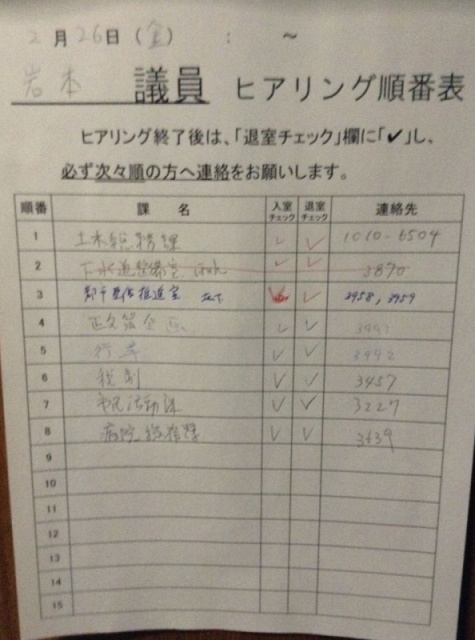 2月26日(金) : ～
岩本 議員 ヒアリング順番表
ヒアリング終了後は、「退室チェック」欄に「✔」し、
必ず次々順の方へ連絡をお願いします。
順番 課 名 入室チェック 退室チェック 連絡先
1 土木総務課 ✓ ✓ 1010-6504
2 下水道整備室 ✓ ✓ 3870
3 都市整備推進室 ✓ 3958, 3959
4 政策企画 ✓ ✓
5 行革 ✓ ✓ 3492
6 税制 ✓ ✓ 3457
7 市民活動課 ✓ ✓ 3227
8 病院総務課 ✓ ✓ 3639
9
10
11
12
13
14
15